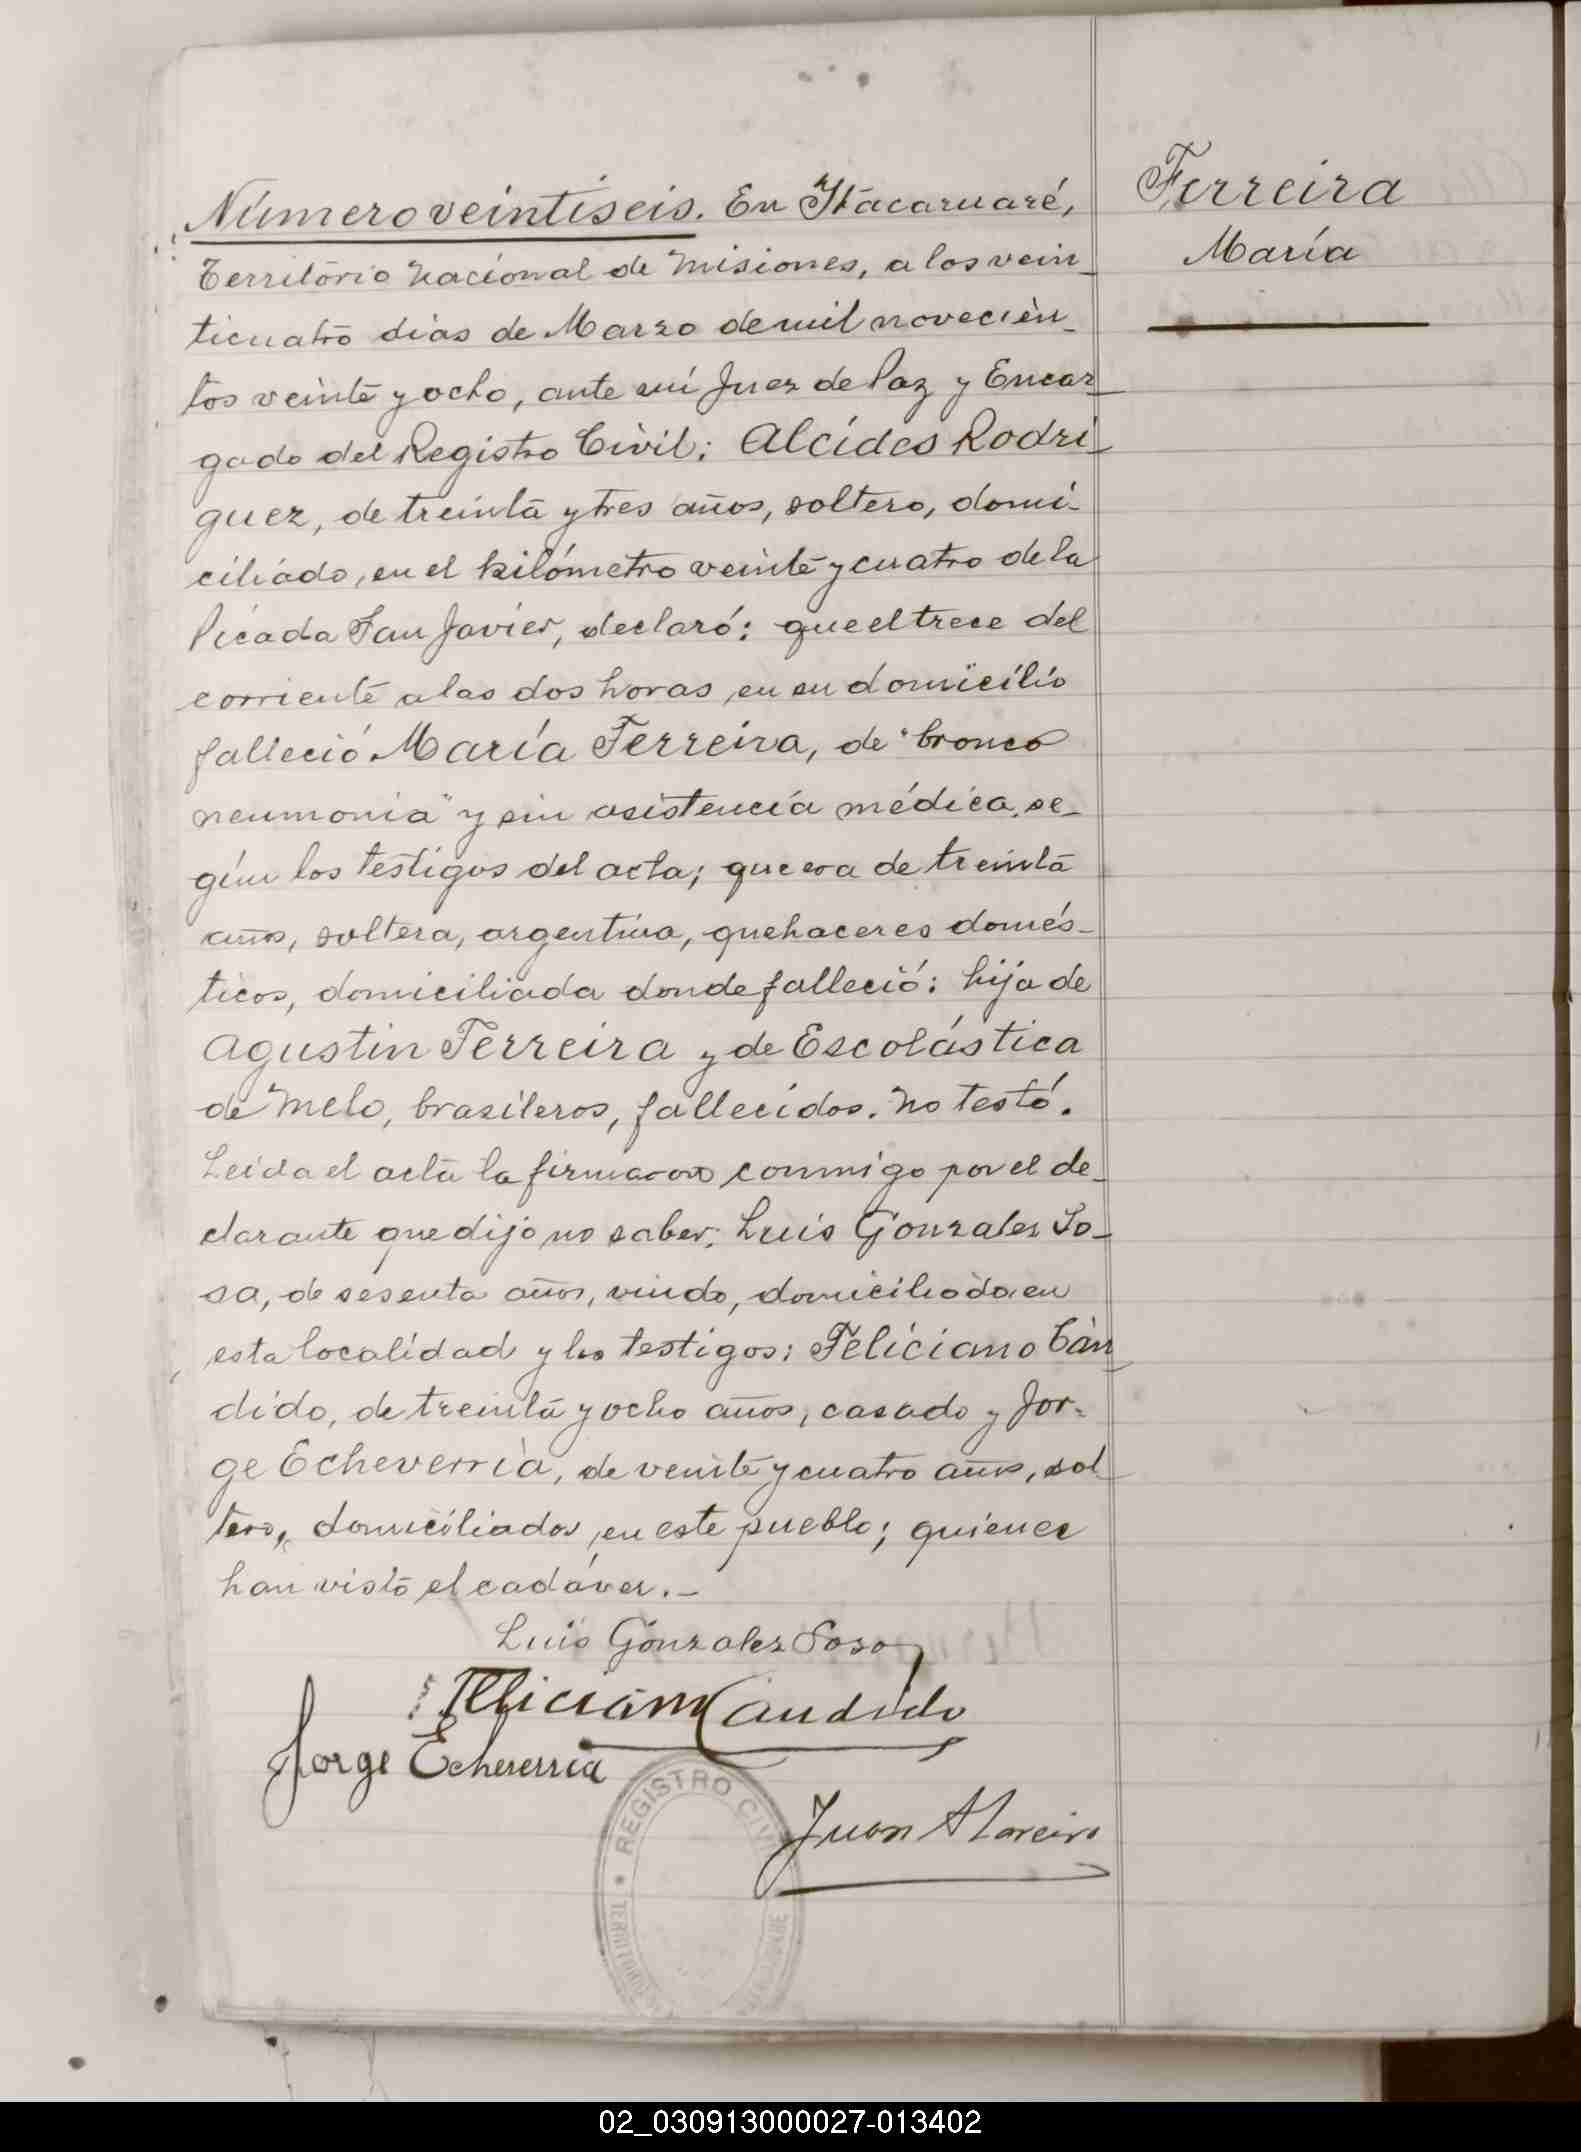 Número veintiseis. En Itacaruaré,
Territorio Nacional de Misiones, a los vein-
ticuatro dias de Marzo de mil novecien-
tos veinte y ocho, ante mí Juez de Paz y Encar-
gado del Registro Civil: Alcídes Rodri-
guez, de treinta y tres años, soltero, domi-
ciliado, en el kilómetro veinte y cuatro de la
Picada San Javier, declaró: que el trece del
corriente a las dos horas, en su domicilio
falleció María Ferreira, de "bronco
neumonia" y sin asistencia médica, se-
gún los testigos del acta; que era de treinta
años, soltera, argentina, quehaceres domés-
ticos, domiciliada donde falleció: hija de
Agustin Ferreira y de Escolástica
de Melo, brasileros, fallecidos. No testó.
Leida el acta la firmaron conmigo por el de-
clarante que dijo no saber; Luis Gonzalez So-
sa, de sesenta años, viudo, domiciliado en
esta localidad y los testigos: Feliciano Cán
dido, de treinta y ocho años, casado y Jor-
ge Echeverria, de veinte y cuatro años, sol
tero, domiciliados, en este pueblo; quienes
han visto el cadáver.-
Luis Gonzalez Sosa
Feliciano Candido
Jorge Echeverria
Juan Moreira
REGISTRO CIVIL
Ferreira
María
02_030913000027-013402